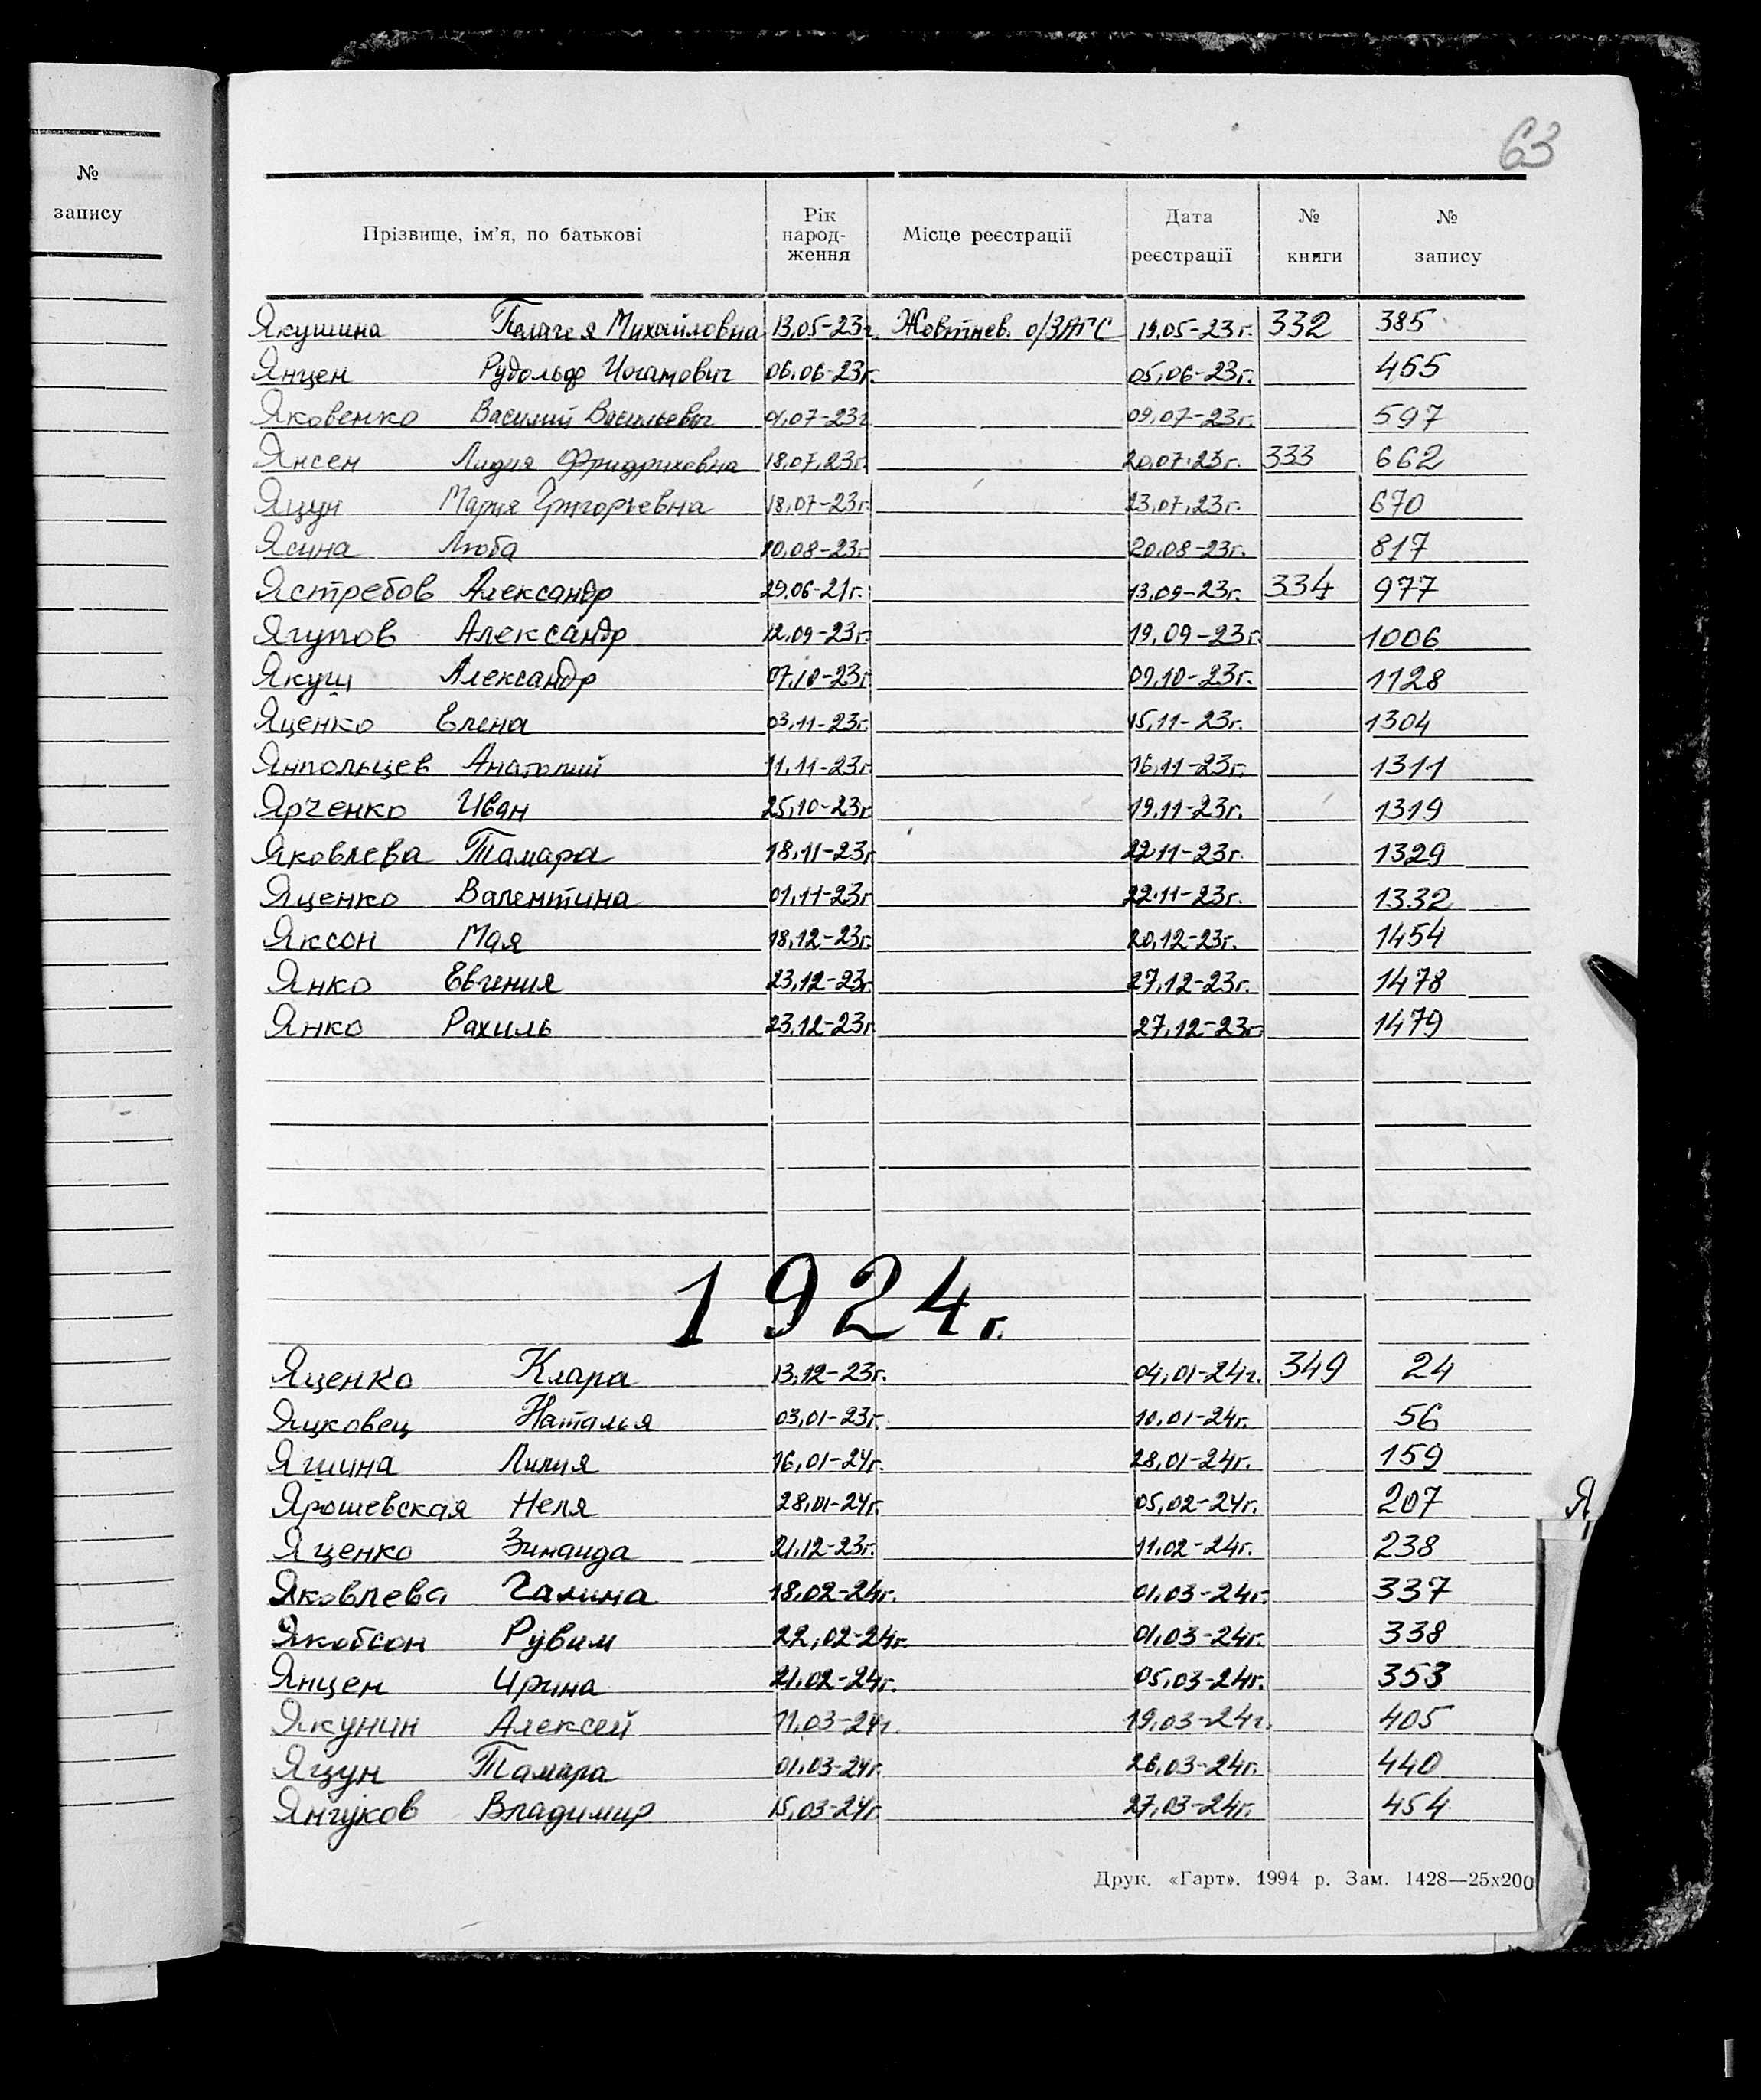 63
№
запису
Прізвище, ім'я, по батькові Рік народ-ження Місце реєстрації Дата реєстрації № книги № запису
Якушина Пелагея Михайловна 13.05-23г. Жовтнев. о/ЗАГС 19.05-23г. 332 385
Янцен Рудольф 06.06-23г. 05.06-23г. 455
Яковенко Василий Васильевич 01.07-23г 09.07-23г. 597
Янсен Лидия Фридриховна 18.07.23г. 20.07.23г. 333 662
Яцун Мария Григорьевна 18.07-23г. 23.07.23г. 670
Ясина Люба 10.08-23г. 20.08-23г. 817
Ястребов Александр 29.06-21г. 13.09-23г. 334 977
Ягупов Александр 12.09-23г. 19.09-23г. 1006
Якущ Александр 07.10-23г. 09.10-23г. 1128
Яценко Елена 03.11-23г. 15.11-23г. 1304
Янпольцев Анатолий 11.11-23г. 16.11-23г. 1311
Ярченко Иван 25.10-23г. 19.11-23г. 1319
Яковлева Тамара 18.11-23г 22.11-23г. 1329
Яценко Валентина 01.11-23г 22.11-23г. 1332
Яксон Мая 18.12-23г. 20.12-23г. 1454
Янко Евгения 23.12-23г. 27.12-23г. 1478
Янко Рахиль 23.12-23г. 27.12-23г. 1479
1924г.
Яценко Клара 13.12-23г. 04.01-24г. 349 24
Яцковец Наталья 03.01-23г. 10.01-24г. 56
Яшина Лилия 16.01-24г. 28.01-24г. 159
Ярошевская Неля 28.01-24г. 05.02-24г. 207
Я
Яценко Зинаида 21.12-23г. 11.02-24г. 238
Яковлева Галина 18.02-24г. 01.03-24г. 337
Якобсон Рувим 22.02-24г. 01.03-24г. 338
Янцен Ирина 21.02-24г. 05.03-24г. 353
Якунин Алексей 11.03-24г. 19.03-24г. 405
Яцун Тамара 01.03-24г. 26.03-24г. 440
Янчуков Владимир 15.03-24г. 27.03-24г. 454
Друк. «Гарт». 1994 р. Зам. 1428—25х200